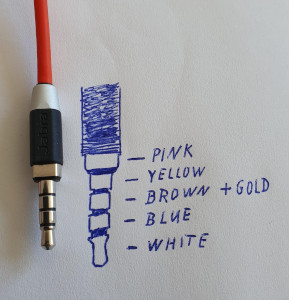 PINK
YELLOW
BROWN + GOLD
BLUE
WHITE